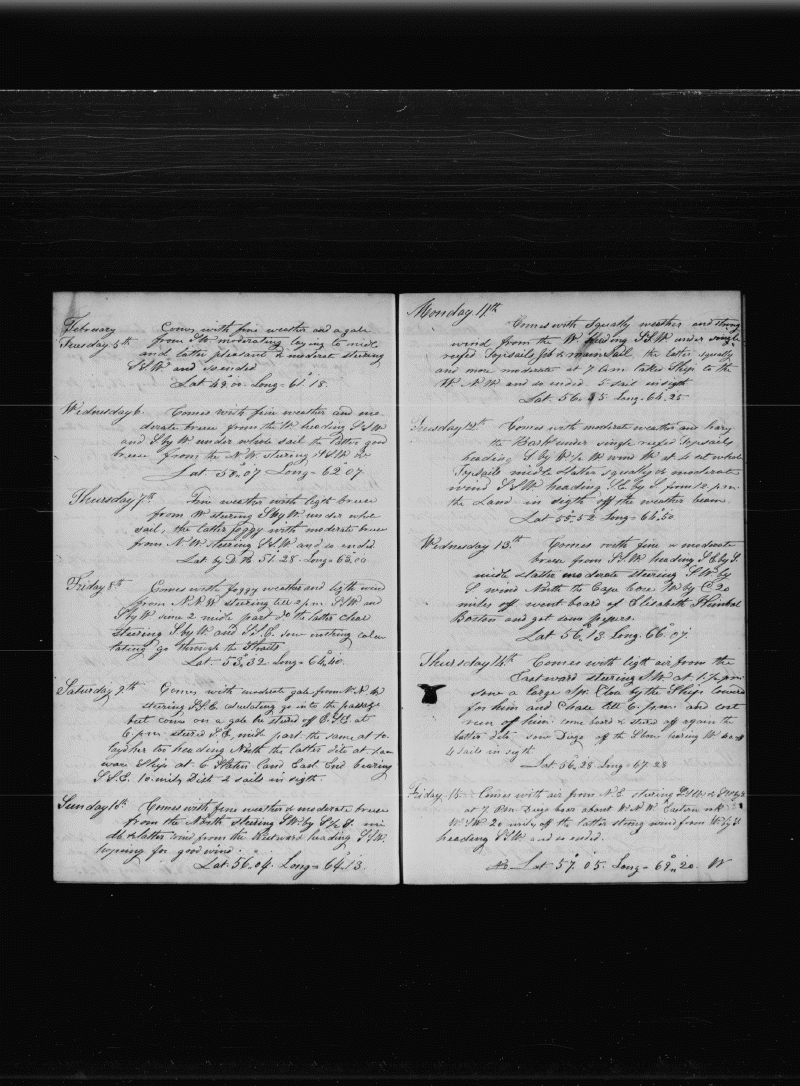 February Comes with fine weather and a gale
Tuesday 5th from SW moderating laying to midle
and latter pleasant & moderate stearing
SSW and so ended
Lat 49.00. Long = 61.18.
Wednesday 6. Comes with fine weather and mo-
derate breese from the W heading SSW
and S by W under whole sail the latter good
breese from the N.W. stering SSW
Lat 50.07 Long = 62.07
Thursday 7th Fine weather with ligth breese
from W stearing S by W. under whole
sail, the latter foggy with moderate breese
from N.W. Stearing SSW and so ended
Lat by D.R. 51.28. Long = 63.00
Friday 8th Comes with foggy weather and ligth wind
from N.N.W. stearing till 2 p.m. SSW and
S by W midle part do the latter clear
stearing S by W and S.S.E. saw nothing calcu-
lating go through the Straits
Lat. 53.32. Long = 64.40.
Saturday 9th Comes with moderate gale from N.N.W
stearing S.S.E. calculating go into the passage
but coms on a gale be steerd off E.S.E. at
6. p.m. steerd S.E. midl part the same at 10.
layd her too heading North the latter dito at
ware Ship at 6 Staten Land East End bearing
S.S.E. 10. mils Dist 2 sails in sigth.
Sunday 10th Comes with fine weather & moderate breese
from the North Stearing SW. by S. mi-
dle & latter wind from the Westward heading SSW.
hopining for good wind.
Lat. 56.04. Long = 64.13.
Monday 11th
Comes with Squally weather and strong
wind from the W heading SSW under single
reefed Topsails Jib & main Sail. the latter squally
and more moderate at 7 am takes Ship to the
W.N.W. and so ended. 5 sail in sigth
Lat. 56.45 Long. 64.25
Tuesday 12th Comes with moderate weather and hazy
the Bark under single reefed Topsails
heading S by W wind W at 4 set whole
Topsails midle & latter squally & moderate
wind SSW heading SE by S from 12 p.m.
the Land in sigth off the weather beam.
Lat 55.52 Long = 64.50
Wednesday 13th. Comes with fine & moderate
breese from SSW heading SE by S.
midle & latter moderate stearing SW by
S wind North the Cape Horn W by 20
miles off went board of Elisabeth
Boston and got som papers.
Lat 56.13 Long. 66.07
Thursday 14th Comes with ligth air from the
Eastward stearing SW at 1/2 p.m.
saw a large Close by the Ship lowerd
for him and Chase till 6. p.m. and cost
run of him. come board & steerd off again the
latter dito. saw Diego off the Stbr bearing W
4 sails in sigth
Lat 56.28 Long = 67.28
Friday 15. Comes with air from N.E. stearing & SW by S
at 7. P.m. Diego bear about W.N.W Eastern rock
N. 20 miles off the latter strong wind from W by S
heading SSW and so ended.
Lat 57.05. Long = 69.20. W